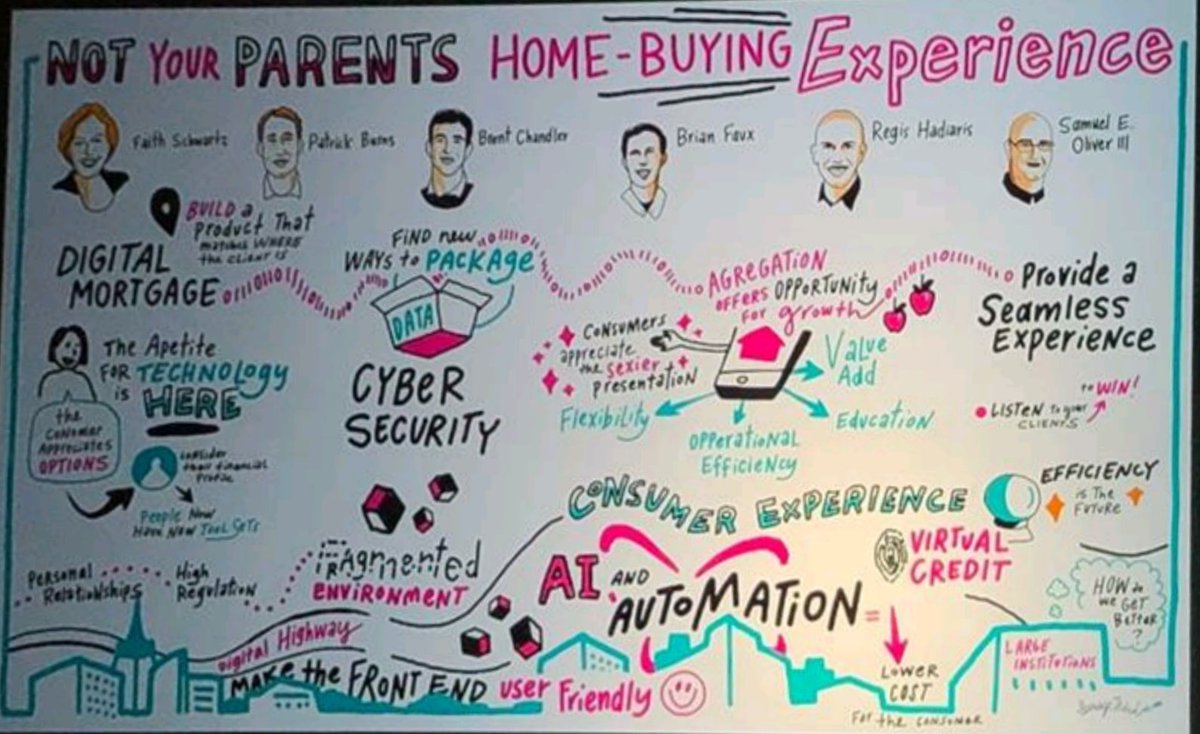 NOT YOUR PARENTS HOME-BUYING Experience
Faith Schwartz
Patrick Burns
Brent Chandler
Brian Faux
Regis Hadiaris
Samuel E.
Oliver III
BUILD a
Product That
matches WHERE
the client is
DIGITAL
MORTGAGE
FIND new
WAYS to PACKAGE
DATA
AGREGATION
OFFERS OPPORTUNITY
FOR growth
Provide a
Seamless
Experience
The Apetite
FOR TECHNOLOGY
is HERE
the
Conumer
Appreciates
OPTIONS
consider
their financial
Profile
People Now
Have New Tool Sets
CYBER
SECURITY
Consumers
appreciate
the sexier
presentation
Value
Add
Flexibility
Education
OPPerational
Efficiency
to WIN!
LISTEN to your
CLIENTS
CONSUMER EXPERIENCE
EFFICIENCY
is The
Future
Personal
Relationships
High
Regulation
FRAgmented
ENVIRONMENT
AI AND
AUTOMATION =
VIRTUAL
CREDIT
HOW do
we GET
Better
?
Digital Highway
MAKE the FRONT END user Friendly
Lower
COST
For the consumer
LARGE
INSTITUTIONS